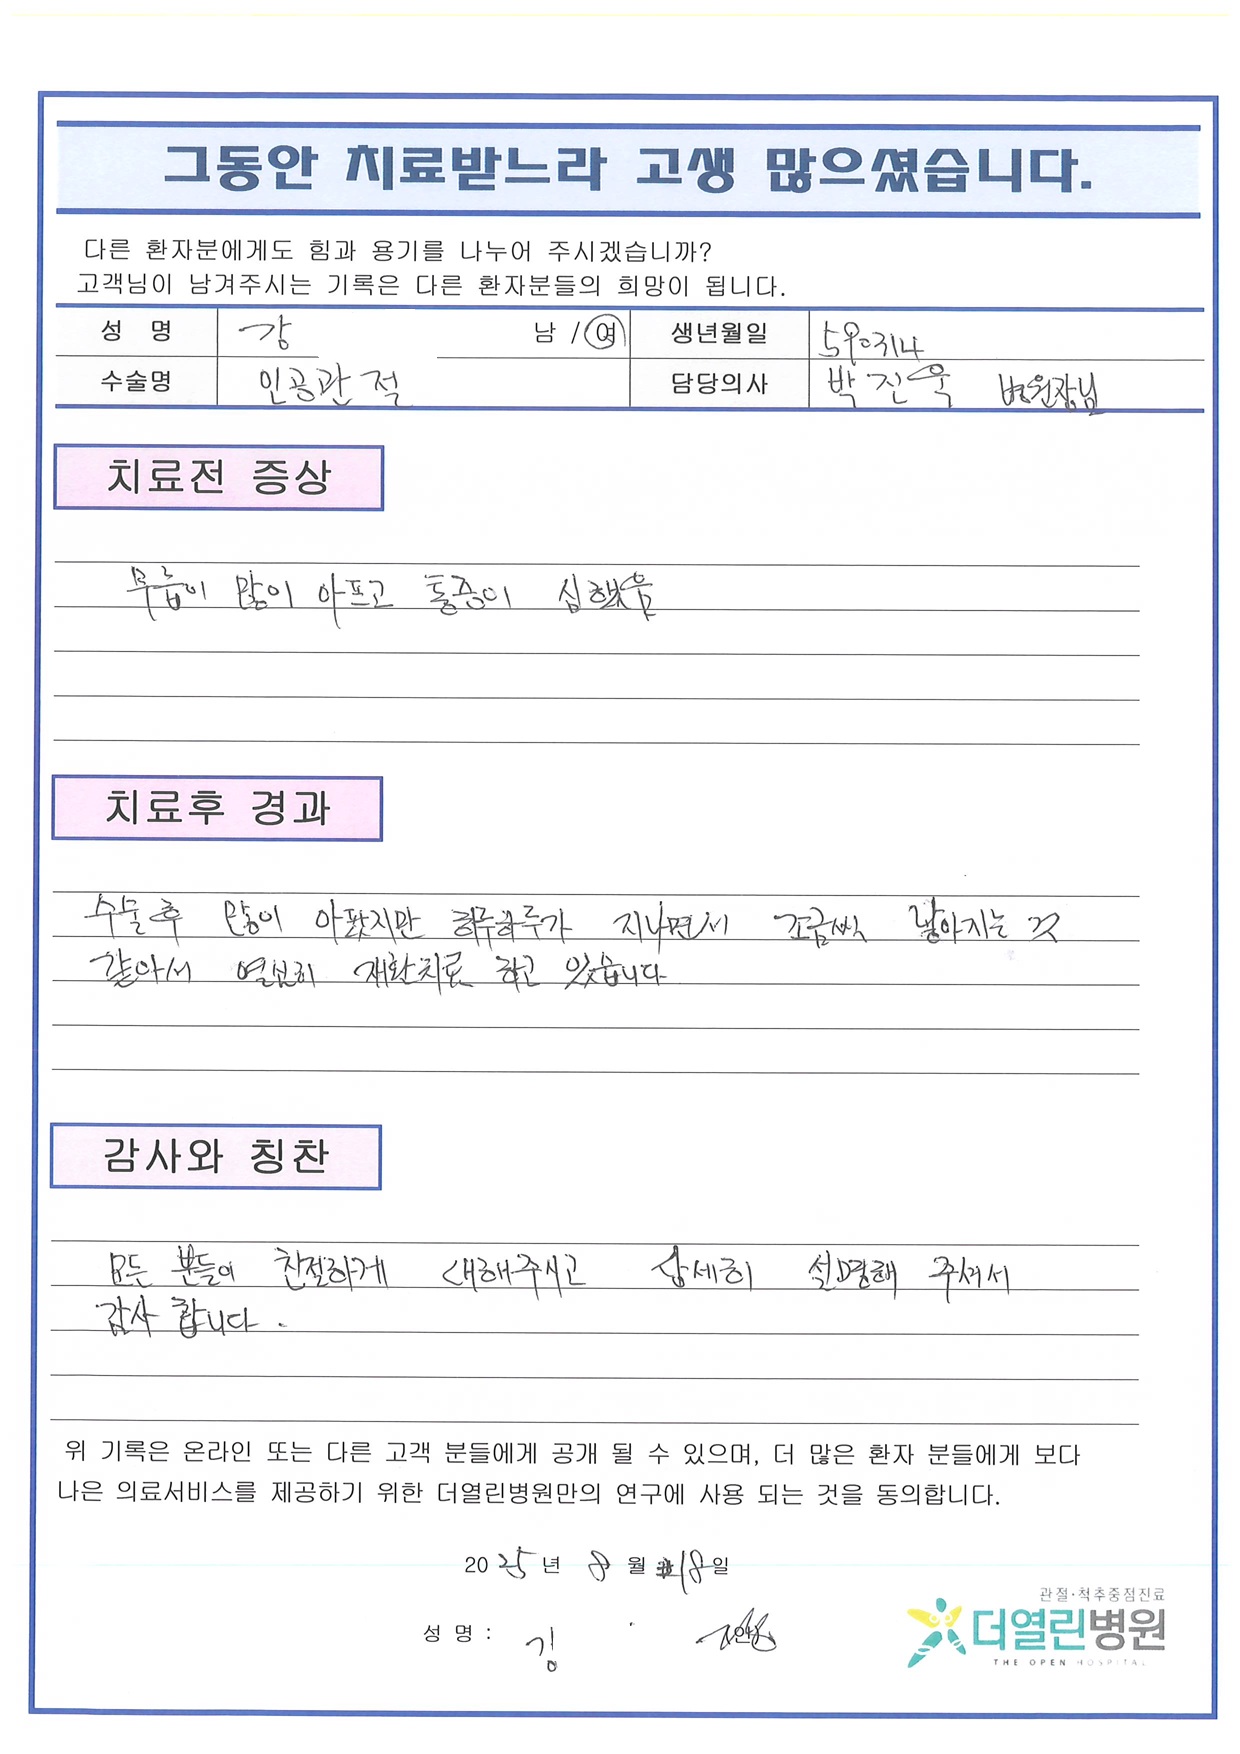 그동안 치료받느라 고생 많으셨습니다.
다른 환자분에게도 힘과 용기를 나누어 주시겠습니까?
고객님이 남겨주시는 기록은 다른 환자분들의 희망이 됩니다.
성 명 강 남 / 여 생년월일 590314
수술명 인공관절 담당의사 박진욱 병원장님
치료전 증상
무릎이 많이 아프고 통증이 심했음
치료후 경과
수술후 많이 아팠지만 하루하루가 지나면서 조금씩 낳아지는 것
같아서 열심히 재활치료 하고 있습니다
감사와 칭찬
모든 분들이 친절하게 대해주시고 상세히 설명해 주셔서
감사 합니다.
위 기록은 온라인 또는 다른 고객 분들에게 공개 될 수 있으며, 더 많은 환자 분들에게 보다
나은 의료서비스를 제공하기 위한 더열린병원만의 연구에 사용 되는 것을 동의합니다.
2025년 8월 18일
성 명 :
관절·척추중점진료
더열린병원
THE OPEN HOSPITAL